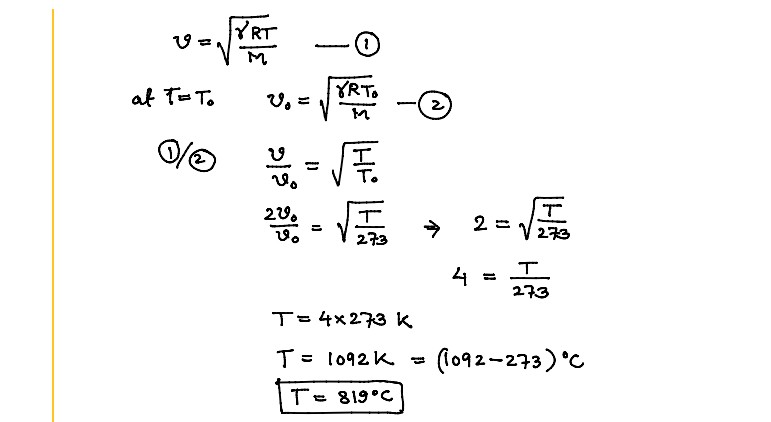 v = √(γRT/M) — ①
at T=T₀ v₀ = √(γRT₀/M) — ②
①/② v/v₀ = √(T/T₀)
2v₀/v₀ = √(T/273) → 2 = √(T/273)
4 = T/273
T = 4×273 K
T = 1092 K = (1092-273) °C
T = 819°C